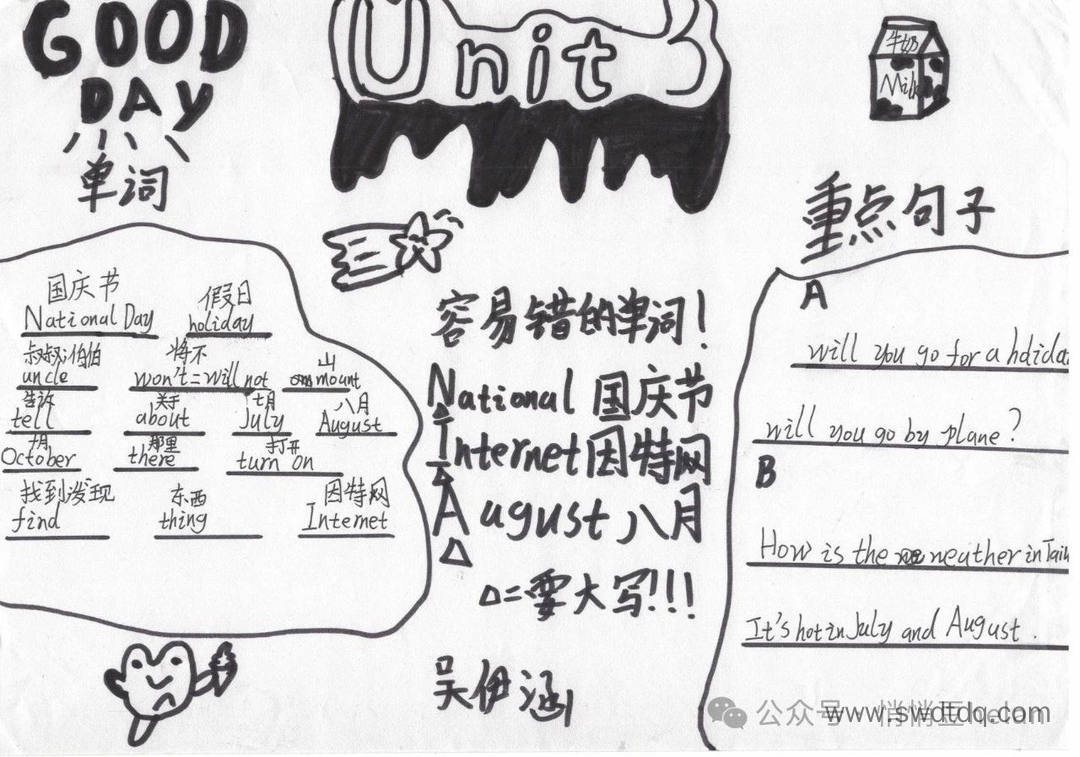 GOOD
DAY
单词
Unit 3
牛奶
Milk
国庆节 假日
National Day holiday
叔叔;伯伯 将不 山
uncle won't=will not mount
告诉 关于 七月 八月
tell about July August
十月 那里 打开
October there turn on
找到发现 东西 因特网
find thing Internet
容易错的单词!
National 国庆节
Internet 因特网
August 八月
△=要大写!!!
吴伊涵
重点句子
A
will you go for a holida
will you go by plane?
B
How is the neather in
It's hot in July and August.
公众号
www.swdtdq.com